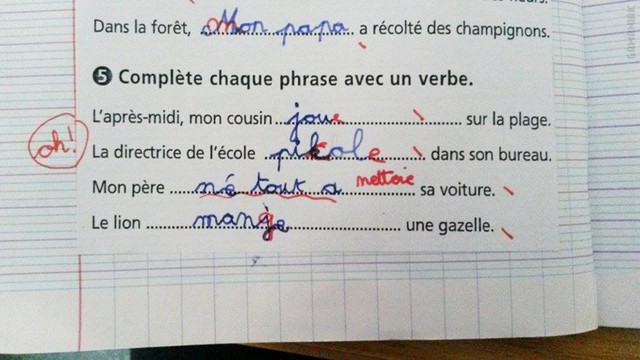 Dans la forêt, Mon papa a récolté des champignons.
5 Complète chaque phrase avec un verbe.
L'après-midi, mon cousin joue sur la plage.
oh!
La directrice de l'école pikole dans son bureau.
Mon père né tout a nettoie sa voiture.
Le lion manje une gazelle.